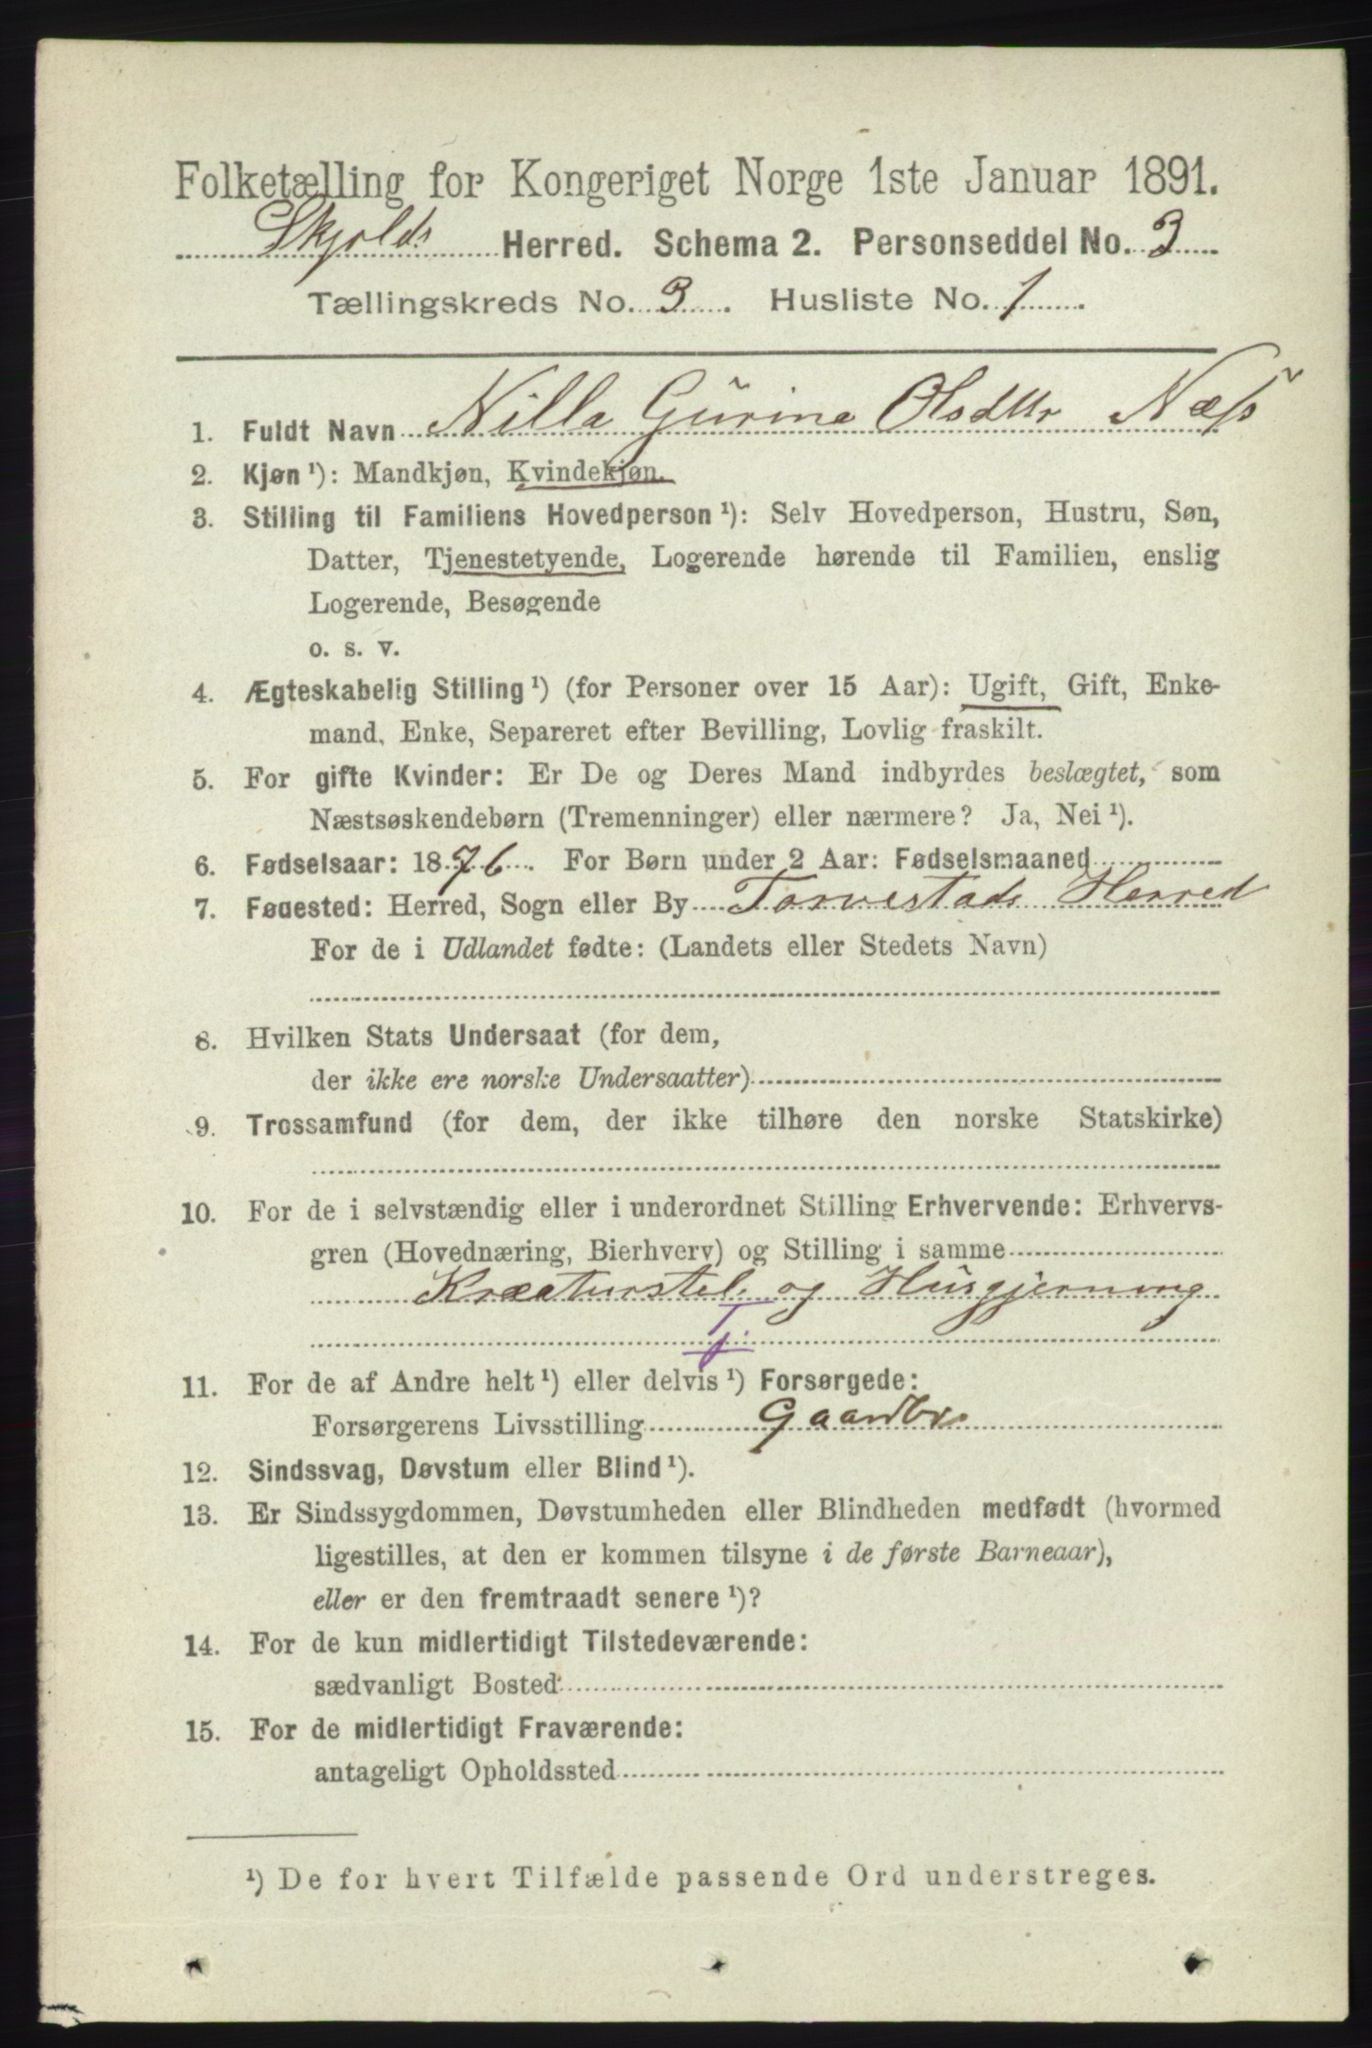 Folketælling for Kongeriget Norge 1ste Januar 1891.
Skjolds Herred. Schema 2. Personseddel No. 3
Tællingskreds No. 3. Husliste No. 1.
1. Fuldt Navn Nilla Gurine Olsdttr Næss
2. Kjøn ¹): Mandkjøn, Kvindekjøn.
3. Stilling til Familiens Hovedperson ¹): Selv Hovedperson, Hustru, Søn,
Datter, Tjenestetyende, Logerende hørende til Familien, enslig
Logerende, Besøgende
o. s. v.
4. Ægteskabelig Stilling ¹) (for Personer over 15 Aar): Ugift, Gift, Enke-
mand, Enke, Separeret efter Bevilling, Lovlig fraskilt.
5. For gifte Kvinder: Er De og Deres Mand indbyrdes beslægtet, som
Næstsøskendebørn (Tremenninger) eller nærmere? Ja, Nei ¹).
6. Fødselsaar: 1876. For Børn under 2 Aar: Fødselsmaaned
7. Fødested: Herred, Sogn eller By Torvestads Herred
For de i Udlandet fødte: (Landets eller Stedets Navn)
8. Hvilken Stats Undersaat (for dem,
der ikke ere norske Undersaatter)
9. Trossamfund (for dem, der ikke tilhøre den norske Statskirke)
10. For de i selvstændig eller i underordnet Stilling Erhvervende: Erhvervs-
gren (Hovednæring, Bierhverv) og Stilling i samme
Kreaturstel. og Husgjerning
Tj.
11. For de af Andre helt ¹) eller delvis ¹) Forsørgede:
Forsørgerens Livsstilling Gaardbr.
12. Sindssvag, Døvstum eller Blind ¹).
13. Er Sindssygdommen, Døvstumheden eller Blindheden medfødt (hvormed
ligestilles, at den er kommen tilsyne i de første Barneaar),
eller er den fremtraadt senere ¹)?
14. For de kun midlertidigt Tilstedeværende:
sædvanligt Bosted
15. For de midlertidigt Fraværende:
antageligt Opholdssted
¹) De for hvert Tilfælde passende Ord understreges.